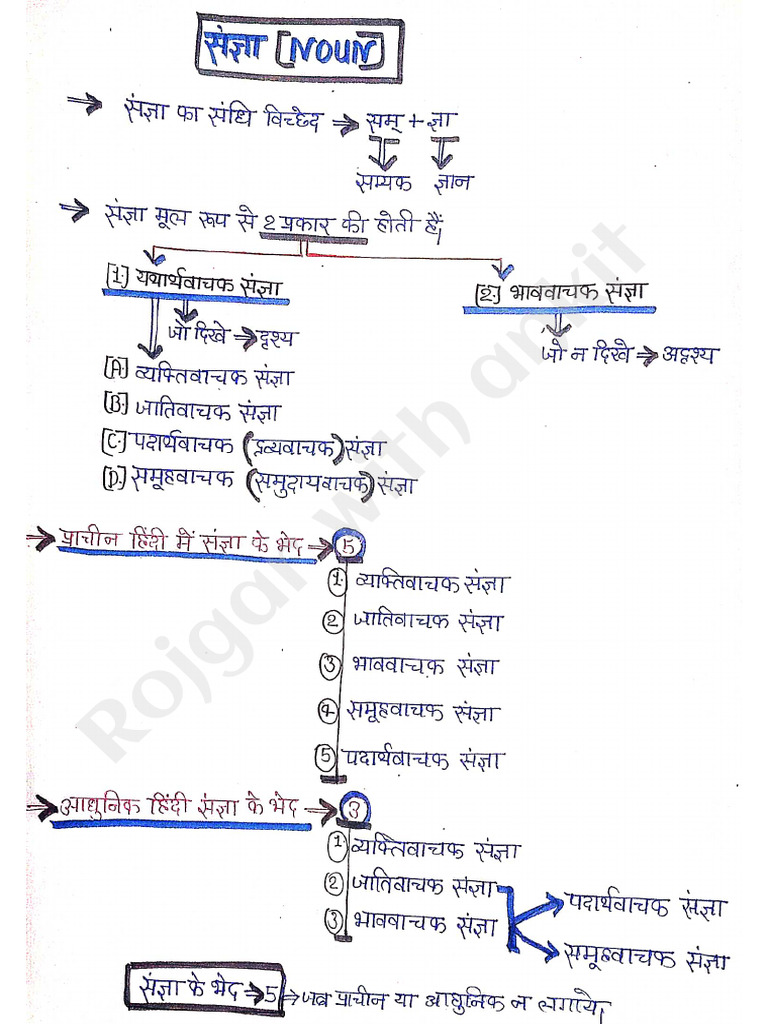 संज्ञा [NOUN]
⇒ संज्ञा का संधि विच्छेद ⇒ सम् + ज्ञा
सम्यक ज्ञान
⇒ संज्ञा मूल रूप से 2 प्रकार की होती हैं।
[1.] यथार्थवाचक संज्ञा
[2.] भाववाचक संज्ञा
जो दिखे ⇒ दृश्य
जो न दिखे ⇒ अदृश्य
[A.] व्यक्तिवाचक संज्ञा
[B.] जातिवाचक संज्ञा
[C.] पदार्थवाचक (द्रव्यवाचक) संज्ञा
[D.] समूहवाचक (समुदायवाचक) संज्ञा
⇒ प्राचीन हिंदी में संज्ञा के भेद ⇒ 5
1. व्यक्तिवाचक संज्ञा
2 जातिवाचक संज्ञा
3 भाववाचक संज्ञा
4 समूहवाचक संज्ञा
5 पदार्थवाचक संज्ञा
⇒ आधुनिक हिंदी संज्ञा के भेद ⇒ 3
1. व्यक्तिवाचक संज्ञा
2 जातिवाचक संज्ञा
3 भाववाचक संज्ञा
पदार्थवाचक संज्ञा
समूहवाचक संज्ञा
संज्ञा के भेद ⇒ 5 ⇒ जब प्राचीन या आधुनिक न लगाये।
Rojgar with ankit